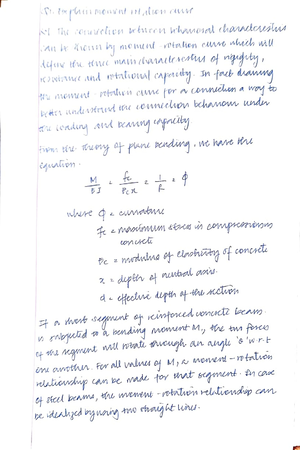 Explain moment rotation curve
The connection between behavioral characteristics
can be shown by moment-rotation curve which will
define the three main characteristics of rigidity,
resistance and rotational capacity. In fact drawing
the moment rotation curve for a connection a way to
better understand the connection behaviour under
the loading and bearing capacity.
From the theory of plane bending, we have the
equation.
M/EI = fc/Ec x = 1/R = φ
where φ = curvature
fc = maximum stress in compression in
concrete
Ec = modulus of elasticity of concrete
x = depth of neutral axis.
d = effective depth of the section
If a short segment of reinforced concrete beam
is subjected to a bending moment M, the two faces
of the segment will rotate through an angle 'θ' w.r.t
one another. For all values of M, a moment-rotation
relationship can be made for that segment. In case
of steel beams, the moment-rotation relationship can
be idealized by using two straight lines.